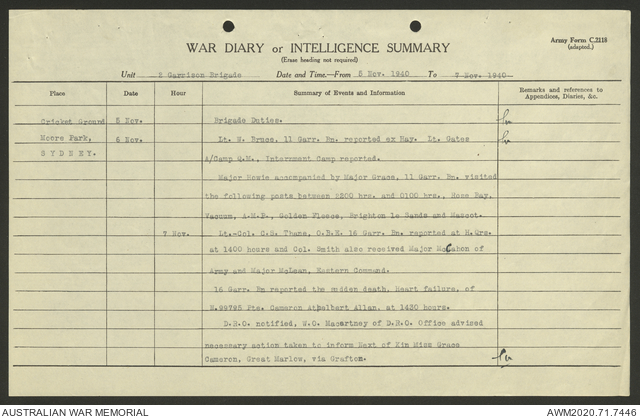 Army Form C.2118
(adapted.)
WAR DIARY or INTELLIGENCE SUMMARY
(Erase heading not required)
Unit 2 Garrison Brigade Date and Time.—From 5 Nov. 1940 To 7 Nov. 1940
Place Date Hour Summary of Events and Information Remarks and references to Appendices, Diaries, &c.
Cricket Ground 5 Nov. Brigade Duties.
Moore Park, 6 Nov. Lt. W. Bruce, 11 Garr. Bn. reported ex Hay. Lt. Gates
SYDNEY. A/Camp Q.M., Internment Camp reported.
Major Howie accompanied by Major Grace, 11 Garr. Bn. visited
the following posts between 2200 hrs. and 0100 hrs., Rose Bay,
Vacuum, A.M.P., Golden Fleece, Brighton le Sands and Mascot.
7 Nov. Lt.-Col. C.S. Thane, O.B.E. 16 Garr. Bn. reported at H.Qrs.
at 1400 hours and Col. Smith also received Major McCahon of
Army and Major McLean, Eastern Command.
16 Garr. Bn reported the sudden death, Heart failure, of
N.99795 Pte. Cameron Athalbert Allan, at 1430 hours.
D.R.O. notified, W.O. Macartney of D.R.O. Office advised
necessary action taken to inform Next of Kin Miss Grace
Cameron, Great Marlow, via Grafton.
AUSTRALIAN WAR MEMORIAL AWM2020.71.7446